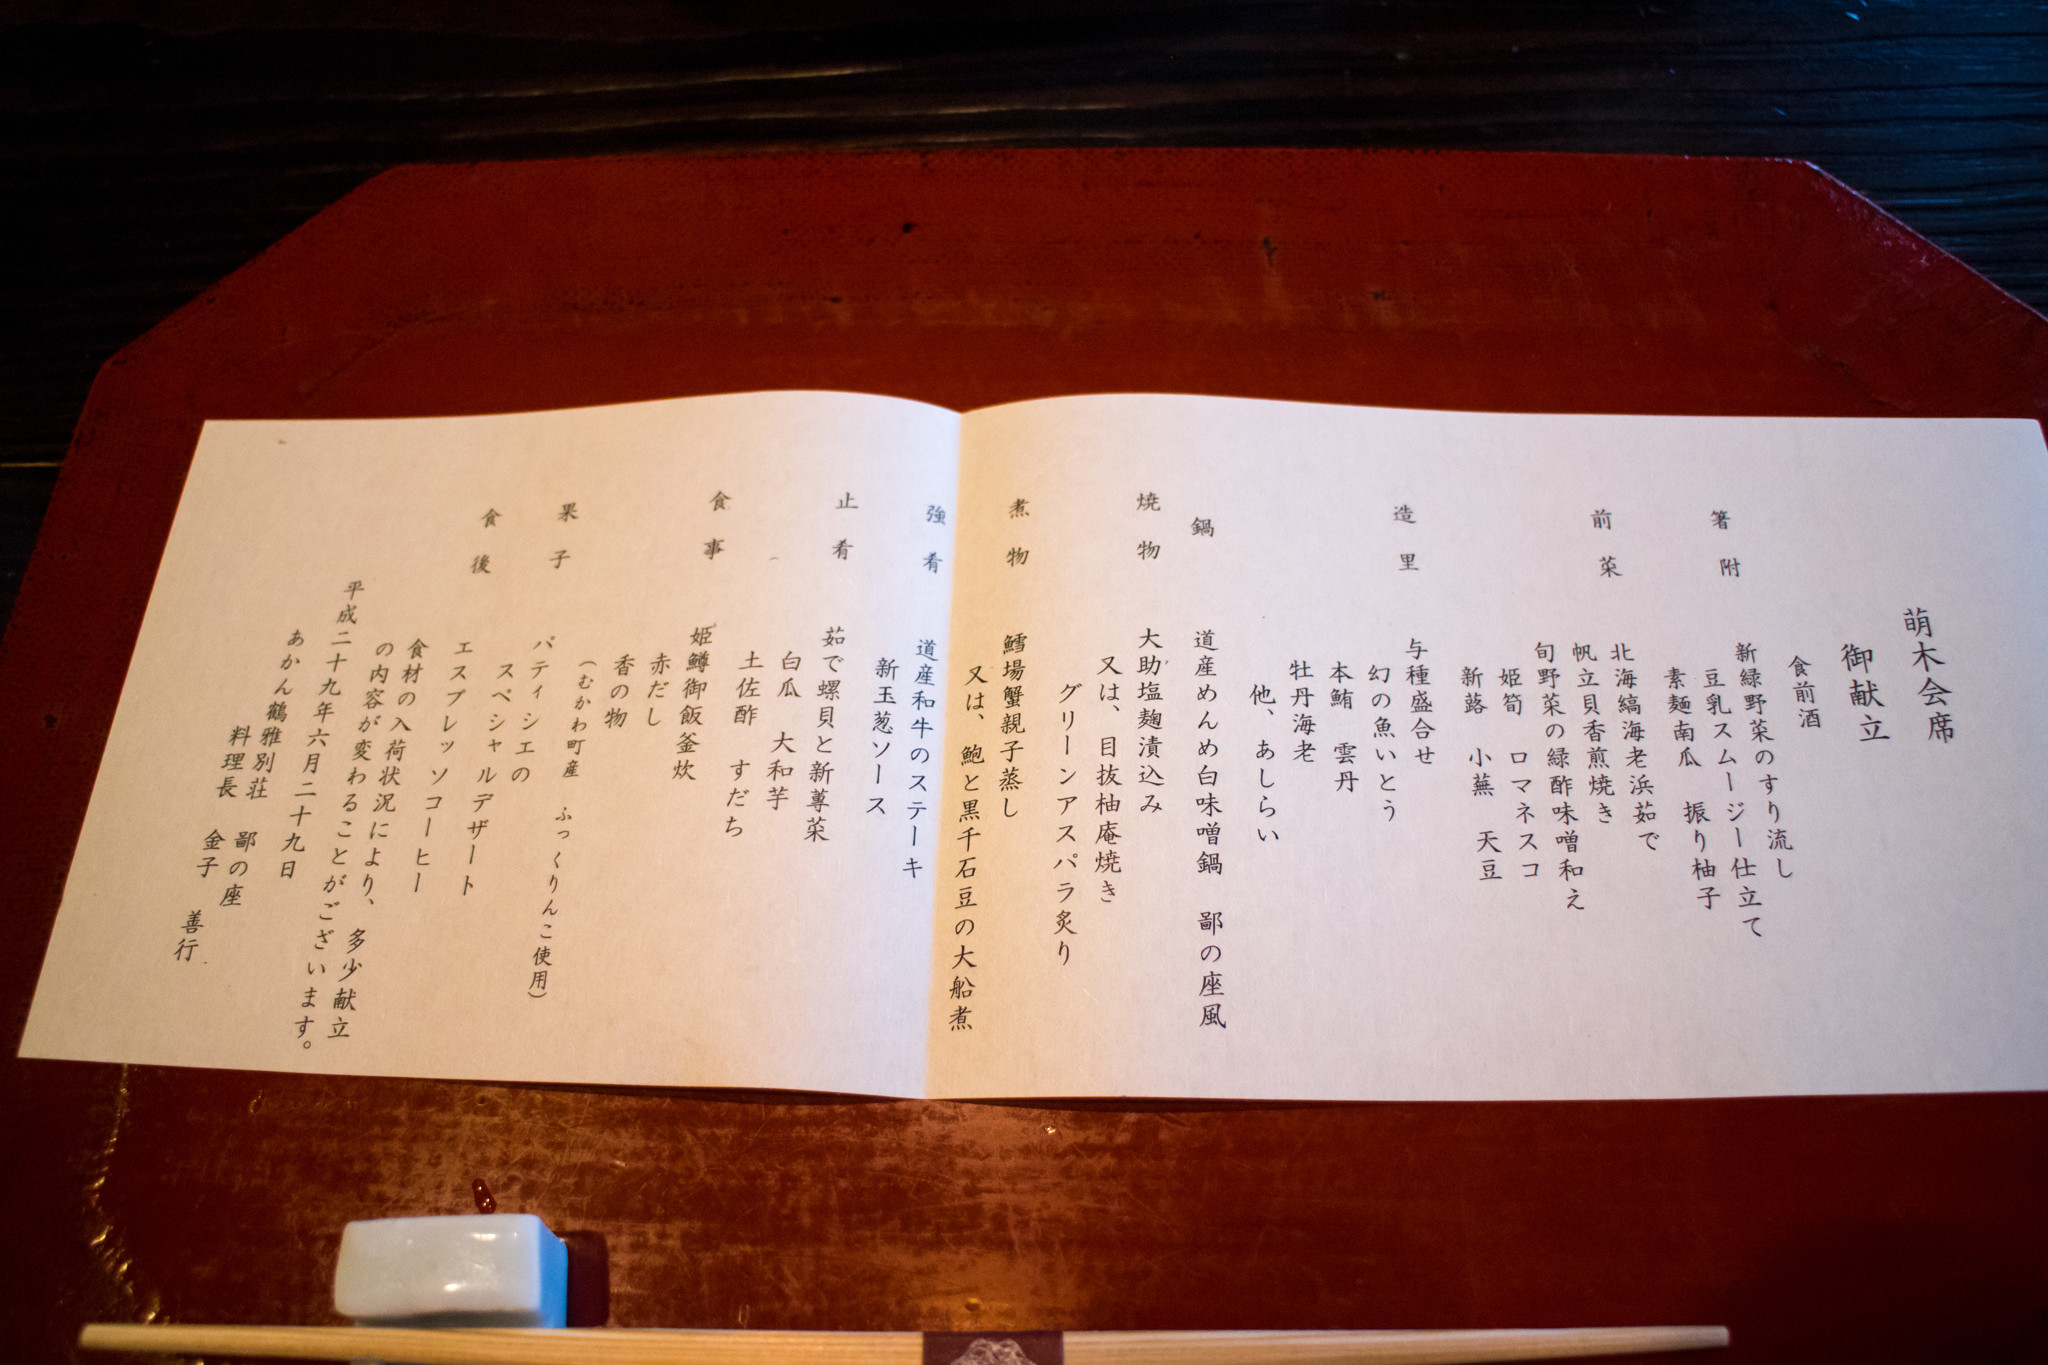 萌木会席
御献立
食前酒
箸附 新緑野菜のすり流し
豆乳スムージー仕立て
素麺南瓜 振り柚子
前菜 北海縞海老浜茹で
帆立貝香煎焼き
旬野菜の緑酢味噌和え
姫筍 ロマネスコ
新蕗 小蕪 天豆
造里 与種盛合せ
幻の魚いとう
本鮪 雲丹
牡丹海老
他、あしらい
鍋 道産めんめ白味噌鍋 鄙の座風
焼物 大助塩麹漬込み
又は、目抜柚庵焼き
グリーンアスパラ炙り
煮物 鱈場蟹親子蒸し
又は、鮑と黒千石豆の大船煮
強肴 道産和牛のステーキ
新玉葱ソース
止肴 茹で螺貝と新蓴菜
白瓜 大和芋
土佐酢 すだち
食事 姫鱒御飯釜炊
赤だし
香の物
(むかわ町産 ふっくりんこ使用)
果子 パティシエの
スペシャルデザート
食後 エスプレッソコーヒー
食材の入荷状況により、多少献立
の内容が変わることがございます。
平成二十九年六月二十九日
あかん鶴雅別荘 鄙の座
料理長 金子 善行